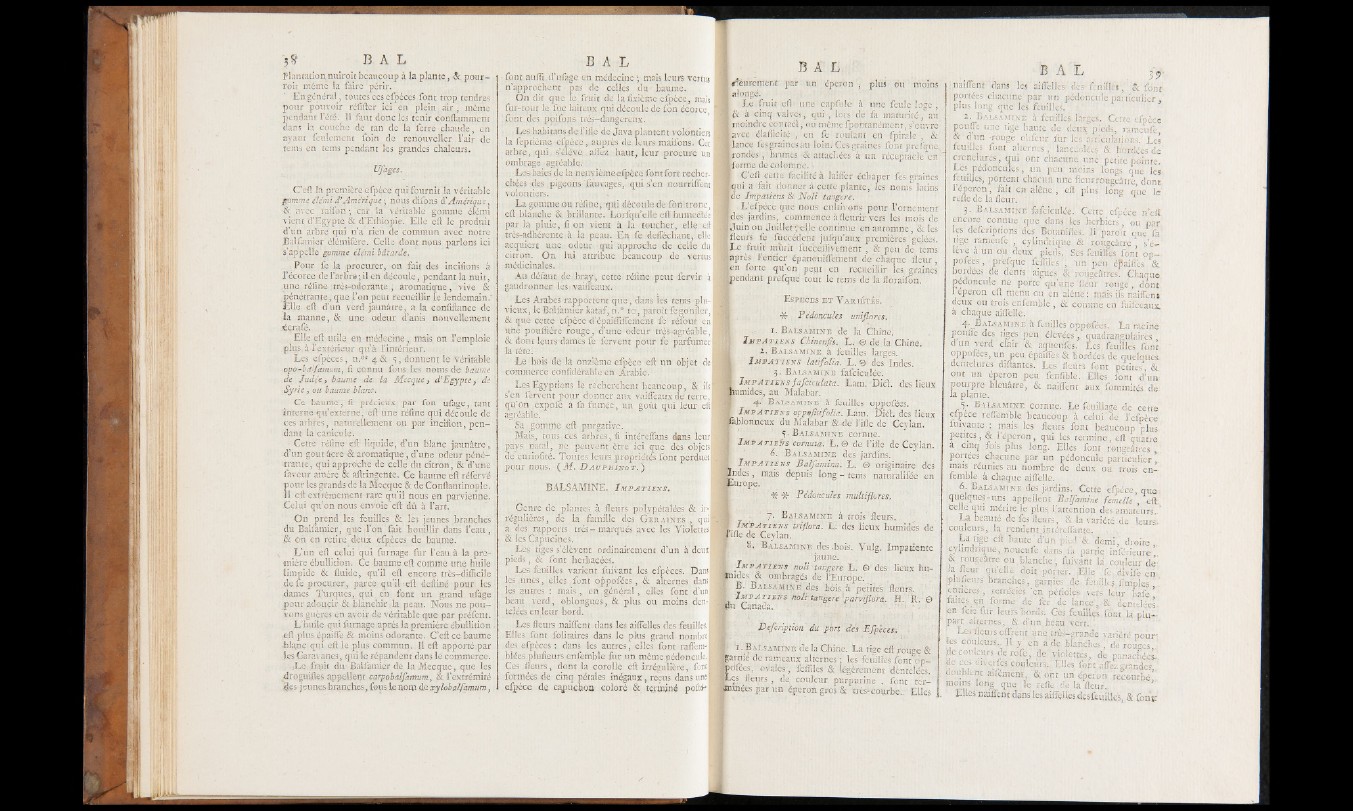 38 B A L
plantation nuiroit beaucoup à la plante, & pour-
roit même la faire périr.
En général, toutes ces espèces sont trop tendres
pour pouvoir résister ici en plein air, même
pendant l'été. Il faut donc les tenir constamment
dans la couche de tan de la serre chaude, en
ayant seulement soin de renouveller l'air de
tems en tems pendant les grandes chaleurs.
Usages.
C'est la première espèce qui fournit la véritable
gomme élémi d'Amérique, nous disons d'Amérique,
& avec raison; car la véritable gomme élémi
vient d'Egypte & d'Ethiopie. Elle est le produit
d'un arbre qui n'a rien de commun avec notre
Balsamier élémifère. Celle dont nous parlons ici
s'appelle gomme élémi bâtarde.
Pour se la procurer, on fait des incisions à
l'écorce de l'arbre; il en découle, pendant la nuit,
une résine très-odorante, aromatique, vive &
pénétrante, que l'on peut recueillir le lendemain.
Elle est d'un verd jaunâtre, a la consistance de
la manne, & une odeur d'anis nouvellement
écrasé.
Elle est utile en médecine, mais on l'emploie
plus à l'extérieur qu'à l'intérieur.
Les espèces, n.os 4 & 5, donnent le véritable
opo-balsamum, si connu sous les noms de baume
de Judée, baume de la Mecque, d'Egypte, de
Syrie, ou baume blanc.
Ce baume, si précieux par son usage, tant
interne qu'externe, est une résine qui découle de
ces arbres, naturellement ou par incision, pen-
dant la canicule.
Cette résine est liquide, d'un blanc jaunâtre,
d'un gout âcre & aromatique, d'une odeur péné-
trante, qui approche de celle du citron, & d'une
saveur amère & astringente. Ce baume est réservé
pour les grands de la Mecque & de Constantinople.
Il est extrêmement rare qu'il nous en parvienne.
Celui qu'on nous envoie est dû à l'art.
On prend les feuilles & les jeunes branches
du Balsamier, que l'on fait bouillir dans l'eau,
& on en retire deux espèces de baume.
L'un est celui qui surnage sur l'eau à la pre-
mière ébullition. Ce baume est comme une huile
limpide & fluide, qu'il est encore très-difficile
de se procurer, parce qu'il est destiné pour les
dames Turques, qui en font un grand usage
pour adoucir & blanchir la peau. Nous ne pou-
vons guères en avoir de véritable que par présent.
L'huile qui surnage après la première ébullition
est plus épaisse & moins odorante. C'est ce baume
blanc qui est le plus commun. Il est apporté par
les Caravanes, qui le répandent dans le commerce.
Le fruit du Balsamier de la Mecque, que les
droguistes appellent carpobalsamum, & l'extrémité
des jeunes branches, sous le nom de xylobalsamum,
B A L
sont aussi d'usage en médecine; mais leurs vertus
n'approchent pas de celles du baume.
On dit que le fruit de la sixième espèce, mais
sur-tout le suc laiteux qui découle de son écorce,
sont des poisons très-dangereux.
Les habitans de l'isle de Java plantent volontiers
la septième espèce, auprès de leurs maisons. Cet
arbre, qui s'élève assez haut, leur procure un
ombrage agréable.
Les baies de la neuvième espèce sont fort recher-
chées des pigeons sauvages, qui s'en nourrissent
volontiers.
La gomme ou résine, qui découle de son tronc,
est blanche & brillante. Lorsqu'elle est humectée
par la pluie, si on vient à la toucher, elle est
très-adhérente à la peau. En se desséchant, elle
acquiert une odeur qui approche de celle du
citron. On lui attribue beaucoup de vertus
médicinales.
Au défaut de bray, cette résine peut servir à
gaudronner les vaisseaux.
Les Arabes rapportent que, dans les tems plu-
vieux, le Balsamier kataf, n.° 10, paroît se gonfler,
& que cette espèce d'épaississement se résout en
une poussière rouge, d'une odeur très-agréable,
& dont leurs dames se servent pour se parfumer
la tête.
Le bois de la onzième espèce est un objet de
commerce considérable en Arabie.
Les Egyptiens le recherchent beaucoup, & ils
s'en servent pour donner aux vaisseaux de terre,
qu'on expose à sa fumée, un gout qui leur est
agréable.
Sa gomme est purgative.
Mais, tous ces arbres, si intéressans dans leur
pays natal, ne peuvent être ici que des objets
de curiosité. Toutes leurs propriétés sont perdues
pour nous. (M. DAUPHINOT.)
BALSAMINE. IMPATIENS.
Genre de plantes à fleurs polypétalées & ir-
régulières, de la famille des GERAINES, qui
a des rapports très-marqués avec les Violettes
& les Capucines.
Les tiges s'élèvent ordinairement d'un à deux
pieds, & sont herbacées.
Les feuilles varient suivant les espèces. Dans
les unes, elles sont opposées, & alternes dans
les autres : mais, en général, elles sont d'un
beau verd, oblongues, & plus ou moins den-
telées en leur bord.
Les fleurs naissent dans les aisselles des feuilles.
Elles sont solitaires dans le plus grand nombre
des espèces : dans les autres, elles sont rassem-
blées plusieurs ensemble sur un même pédoncule.
Ces fleurs, dont la corolle est irrégulière, sont
formées de cinq pétales inégaux, reçus dans une
espèce de capuchon coloré & terminé posté-
B A L
rieurement par un éperon, plus ou moins
alongé.
Le fruit est une capsule à une seule loge,
& à cinq valves, qui, lors de sa maturité, au
moindre contact, ou même spontanément, s'ouvre
avec élasticité, en se roulant en spirale, &
lance ses graines au loin. Ces graines sont presque
rondes, brunes & attachées à un réceptacle en
forme de colonne.
C'est cette facilité à laisser échaper ses graines
qui a fait donner à cette plante, les noms latins
de Impatiens & Noli tangere.
L'espèce que nous cultivons pour l'ornement
des jardins, commence à fleurir vers les mois de
Juin ou Juillet; elle continue en automne, & les
fleurs se succèdent jusqu'aux premières gelées.
Le fruit mûrit successivement, & peu de tems
après l'entier épanouissement de chaque fleur,
en sorte qu'on peut en recueillir les graines
pendant presque tout le tems de la floraison.
ESPECES ET VARIÉTÉS.
* Pédoncules uniflores.
1. BALSAMINE de la Chine.
IMPATIENS Chinensis. L. ☉ de la Chine.
2. BALSAMINE à feuilles larges.
IMPATIENS latifolia. L. ☉ des Indes.
3. BALSAMINE fasciculée.
IMPATIENS fasciculata. Lam. Dict. des lieux
humides, au Malabar.
4. BALSAMINE à feuilles opposées.
IMPATIENS oppositifolia. Lam. Dict. des lieux
sablonneux du Malabar & de l'isle de Ceylan.
5. BALSAMINE cornue.
IMPATIENS cornuta. L. ☉ de l'isle de Ceylan.
6. BALSAMINE des jardins.
IMPATIENS Balsamina. L. ☉ originaire des
Indes, mais depuis long-tems naturalisée en
Europe.
* * Pédoncules multiflores.
7. BALSAMINE à trois fleurs.
IMPATIENS triflora. L. des lieux humides de
l'isle de Ceylan.
8. BALSAMINE des bois. Vulg. Impatiente
jaune.
IMPATIENS noli tangere L. ☉ des lieux hu-
mides & ombragés de l'Europe.
B. BALSAMINE des bois à petites fleurs.
IMPATIENS noli tangere parviflora. H. R. ☉
du Canada.
Description du port des Espèces.
1. BALSAMINE de la Chine. La tige est rouge &
garnie de rameaux alternes; les feuilles sont op-
posées, ovales, sessiles & légèrement dentelées.
Les fleurs, de couleur purpurine, sont ter-
minées par un éperon gros & très-courbe. Elles
B A L 39
naissent dans les aisselles des feuilles, & sont
portées chacune par un pédoncule particulier,
plus long que les feuilles.
2. BALSAMINE à feuilles larges. Cette espèce
pousse une tige haute de deux pieds, rameuse,
& d'un rouge obscur sur les articulations. Les
feuilles sont alternes, lancéolées & bordées de
crenelures, qui ont chacune une petite pointe.
Les pédoncules, un peu moins longs que les
feuilles, portent chacun une fleur rougeâtre, dont
l'éperon, fait en alêne, est plus long que le
reste de la fleur.
3. BALSAMINE fasciculée. Cette espèce n'est
encore connue que dans les herbiers, ou par
les descriptions des Botanistes. Il paroît que sa
tige rameuse, cylindrique & rougeâtre, s'é-
lève à un ou deux pieds. Ses feuilles sont op-
posées, presque sessiles, un peu épaisses &
bordées de dents aigues & rougeâtres. Chaque
pédoncule ne porte qu'une fleur rouge, dont
l'éperon est menu ou en alêne: mais ils naissent
deux ou trois ensemble, & comme en faisceaux
à chaque aisselle.
4. BALSAMINE à feuilles opposées. La racine
pousse des tiges peu élevées, quadrangulaires,
d'un verd clair & aqueuses. Les feuilles sont
opposées, un peu épaisses & bordées de quelques
dentelures distantes. Les fleurs sont petites, &
ont un éperon peu sensible. Elles sont d'un
pourpre bleuâtre, & naissent aux sommités de
la plante.
5. BALSAMINE cornue. Le feuillage de cette
espèce ressemble beaucoup à celui de l'espèce
suivante : mais les fleurs sont beaucoup plus
petites, & l'éperon, qui les termine, est quatre
à cinq fois plus long. Elles sont rougeâtres,
portées chacune par un pédoncule particulier,
mais réunies au nombre de deux ou trois en-
semble à chaque aisselle.
6. BALSAMINE des jardins. Cette espèce, que
quelques-uns appellent Balsamine femelle, est
celle qui mérite le plus l'attention des amateurs.
La beauté de ses fleurs, & la variété de leurs
couleurs, la rendent intéressante.
La tige est haute d'un pied & demi, droite,
cylindrique, noueuse dans sa partie inférieure,
& roussâtre ou blanche, suivant la couleur de
la fleur qu'elle doit porter. Elle se divise en
plusieurs branches, garnies de feuilles simples,
entières, rétrécies en pétioles vers leur base,
faites en forme de fer de lance, & dentelées
en scie sur leurs bords. Ces feuilles sont la plu-
part alternes, & d'un beau vert.
Les fleurs offrent une très-grande variété pour
les couleurs. Il y en a de blanches, de rouges,
de couleurs de rose, de violettes, de panachées
de ces diverses couleurs. Elles sont assez grandes,
doublent aisément, & ont un éperon recourbé,
moins long que le reste de la fleur.
Elles naissent dans les aisselles des feuilles, & sont